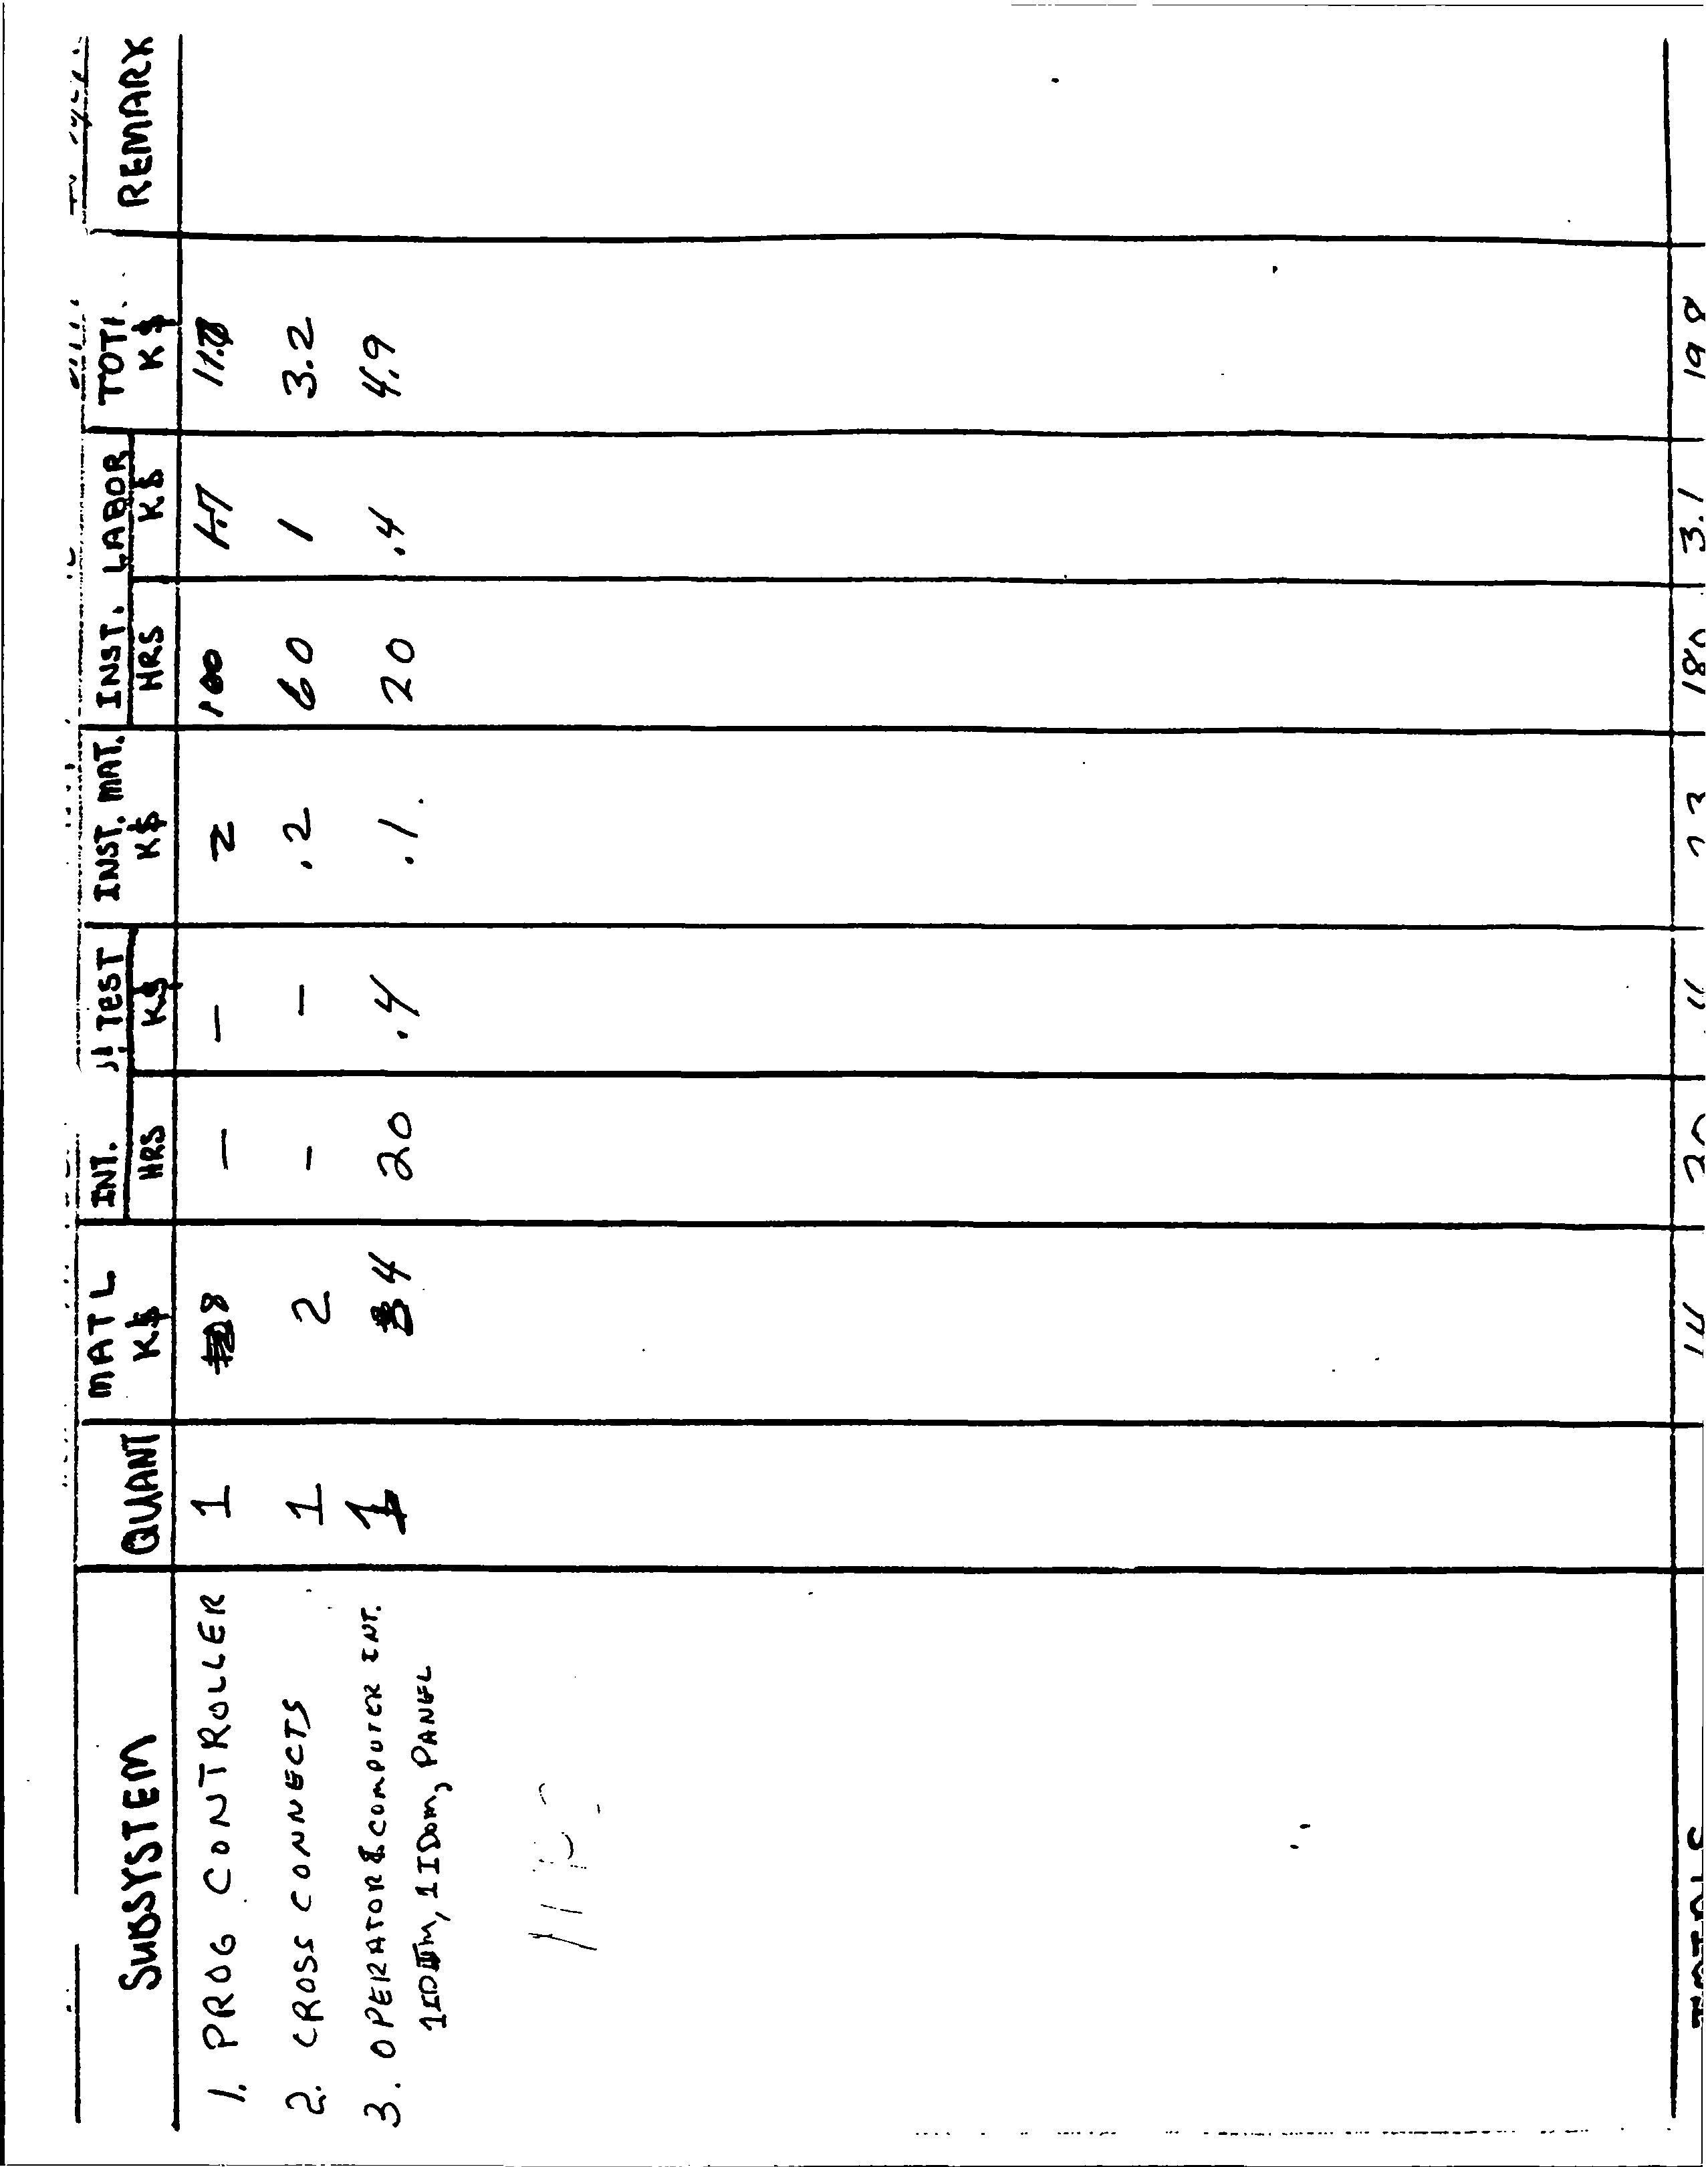 SUBSYSTEM QUANT MAT L K$ INT. TEST INST. MAT. K$ INST. LABOR TOTL. K$ REMARK
HRS K$ HRS K$
1. PROG CONTROLLER 1 8 — — 2 100 1.7 11.7
2. CROSS CONNECTS 1 2 - — .2 60 1 3.2
3. OPERATOR & COMPUTER INT. 1 4 20 .4 .1 20 .4 4.9
1 IDIM, 1 IDOM, PANEL
TOTALS 14 20 .4 2.3 180 3.1 19.8